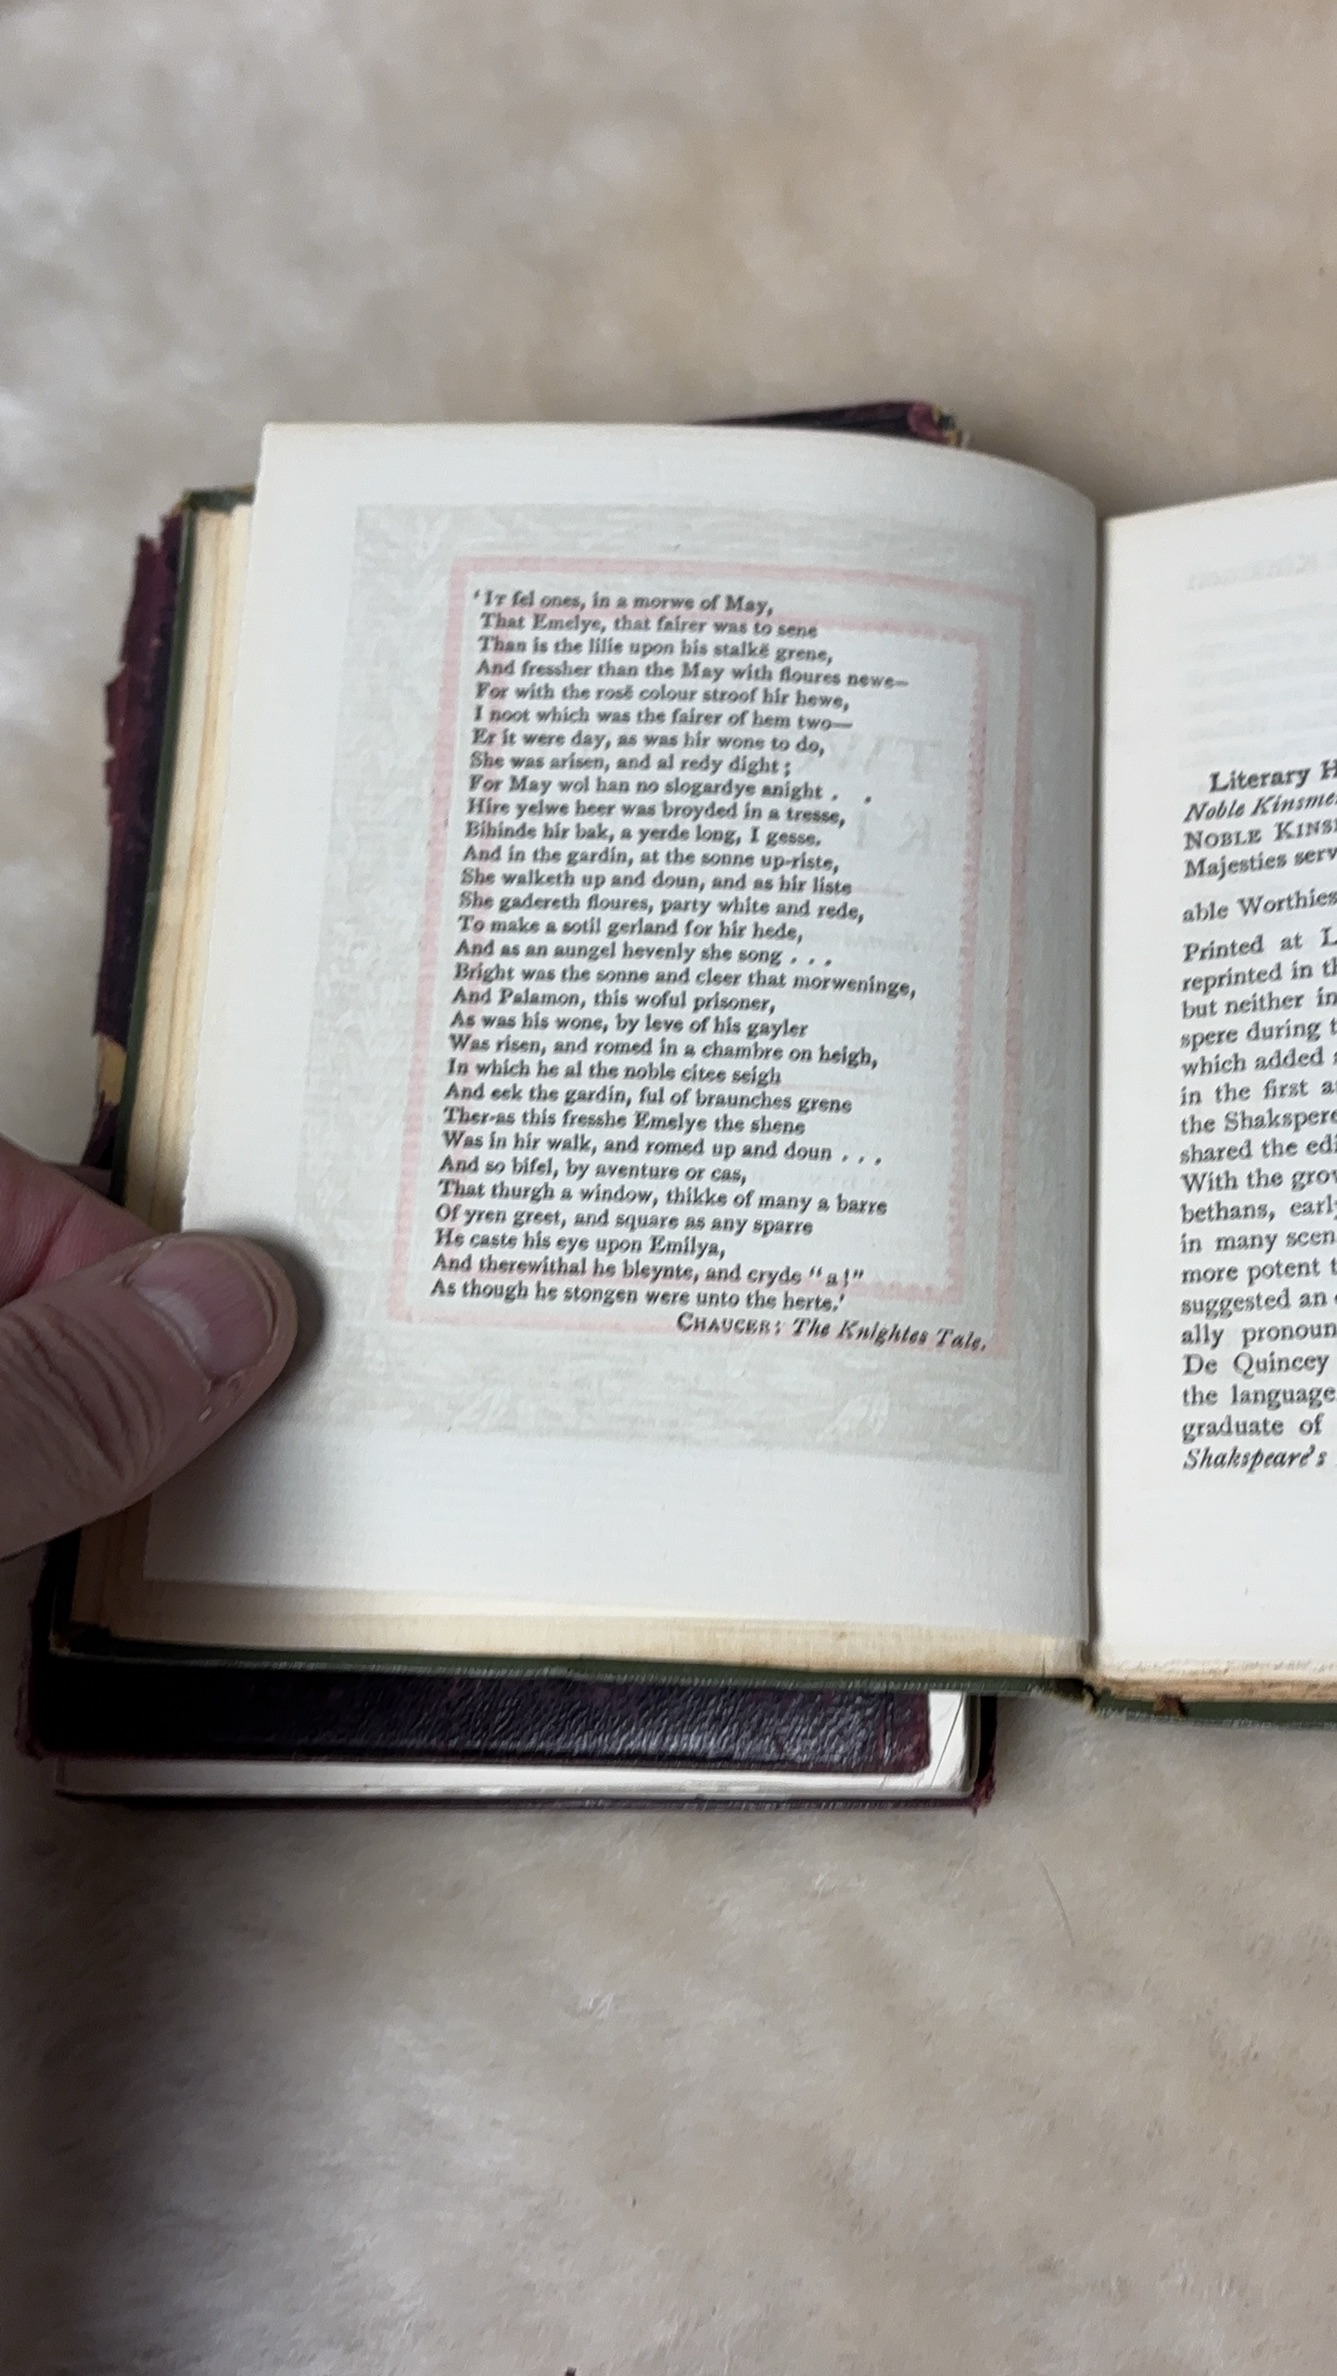 ‘It fel ones, in a morwe of May,
That Emelye, that fairer was to sene
Than is the lilie upon his stalkë grene,
And fressher than the May with floures newe—
For with the rosë colour stroof hir hewe,
I noot which was the fairer of hem two—
Er it were day, as was hir wone to do,
She was arisen, and al redy dight;
For May wol han no slogardye anight . .
Hire yelwe heer was broyded in a tresse,
Bihinde hir bak, a yerde long, I gesse.
And in the gardin, at the sonne up-riste,
She walketh up and doun, and as hir liste
She gadereth floures, party white and rede,
To make a sotil gerland for hir hede,
And as an aungel hevenly she song . . .
Bright was the sonne and cleer that morweninge,
And Palamon, this woful prisoner,
As was his wone, by leve of his gayler
Was risen, and romed in a chambre on heigh,
In which he al the noble citee seigh
And eek the gardin, ful of braunches grene
Ther-as this fresshe Emelye the shene
Was in hir walk, and romed up and doun . . .
And so bifel, by aventure or cas,
That thurgh a window, thikke of many a barre
Of yren greet, and square as any sparre
He caste his eye upon Emilya,
And therewithal he bleynte, and cryde “a!”
As though he stongen were unto the herte.’
CHAUCER: The Knightes Tale.
Literary H
Noble Kinsme
NOBLE KINS
Majesties serv
able Worthies
Printed at L
reprinted in th
but neither in
spere during t
which added
in the first a
the Shakspere
shared the edi
With the grow
bethans, early
in many scen
more potent t
suggested an
ally pronoun
De Quincey
the language
graduate of
Shakspeare's